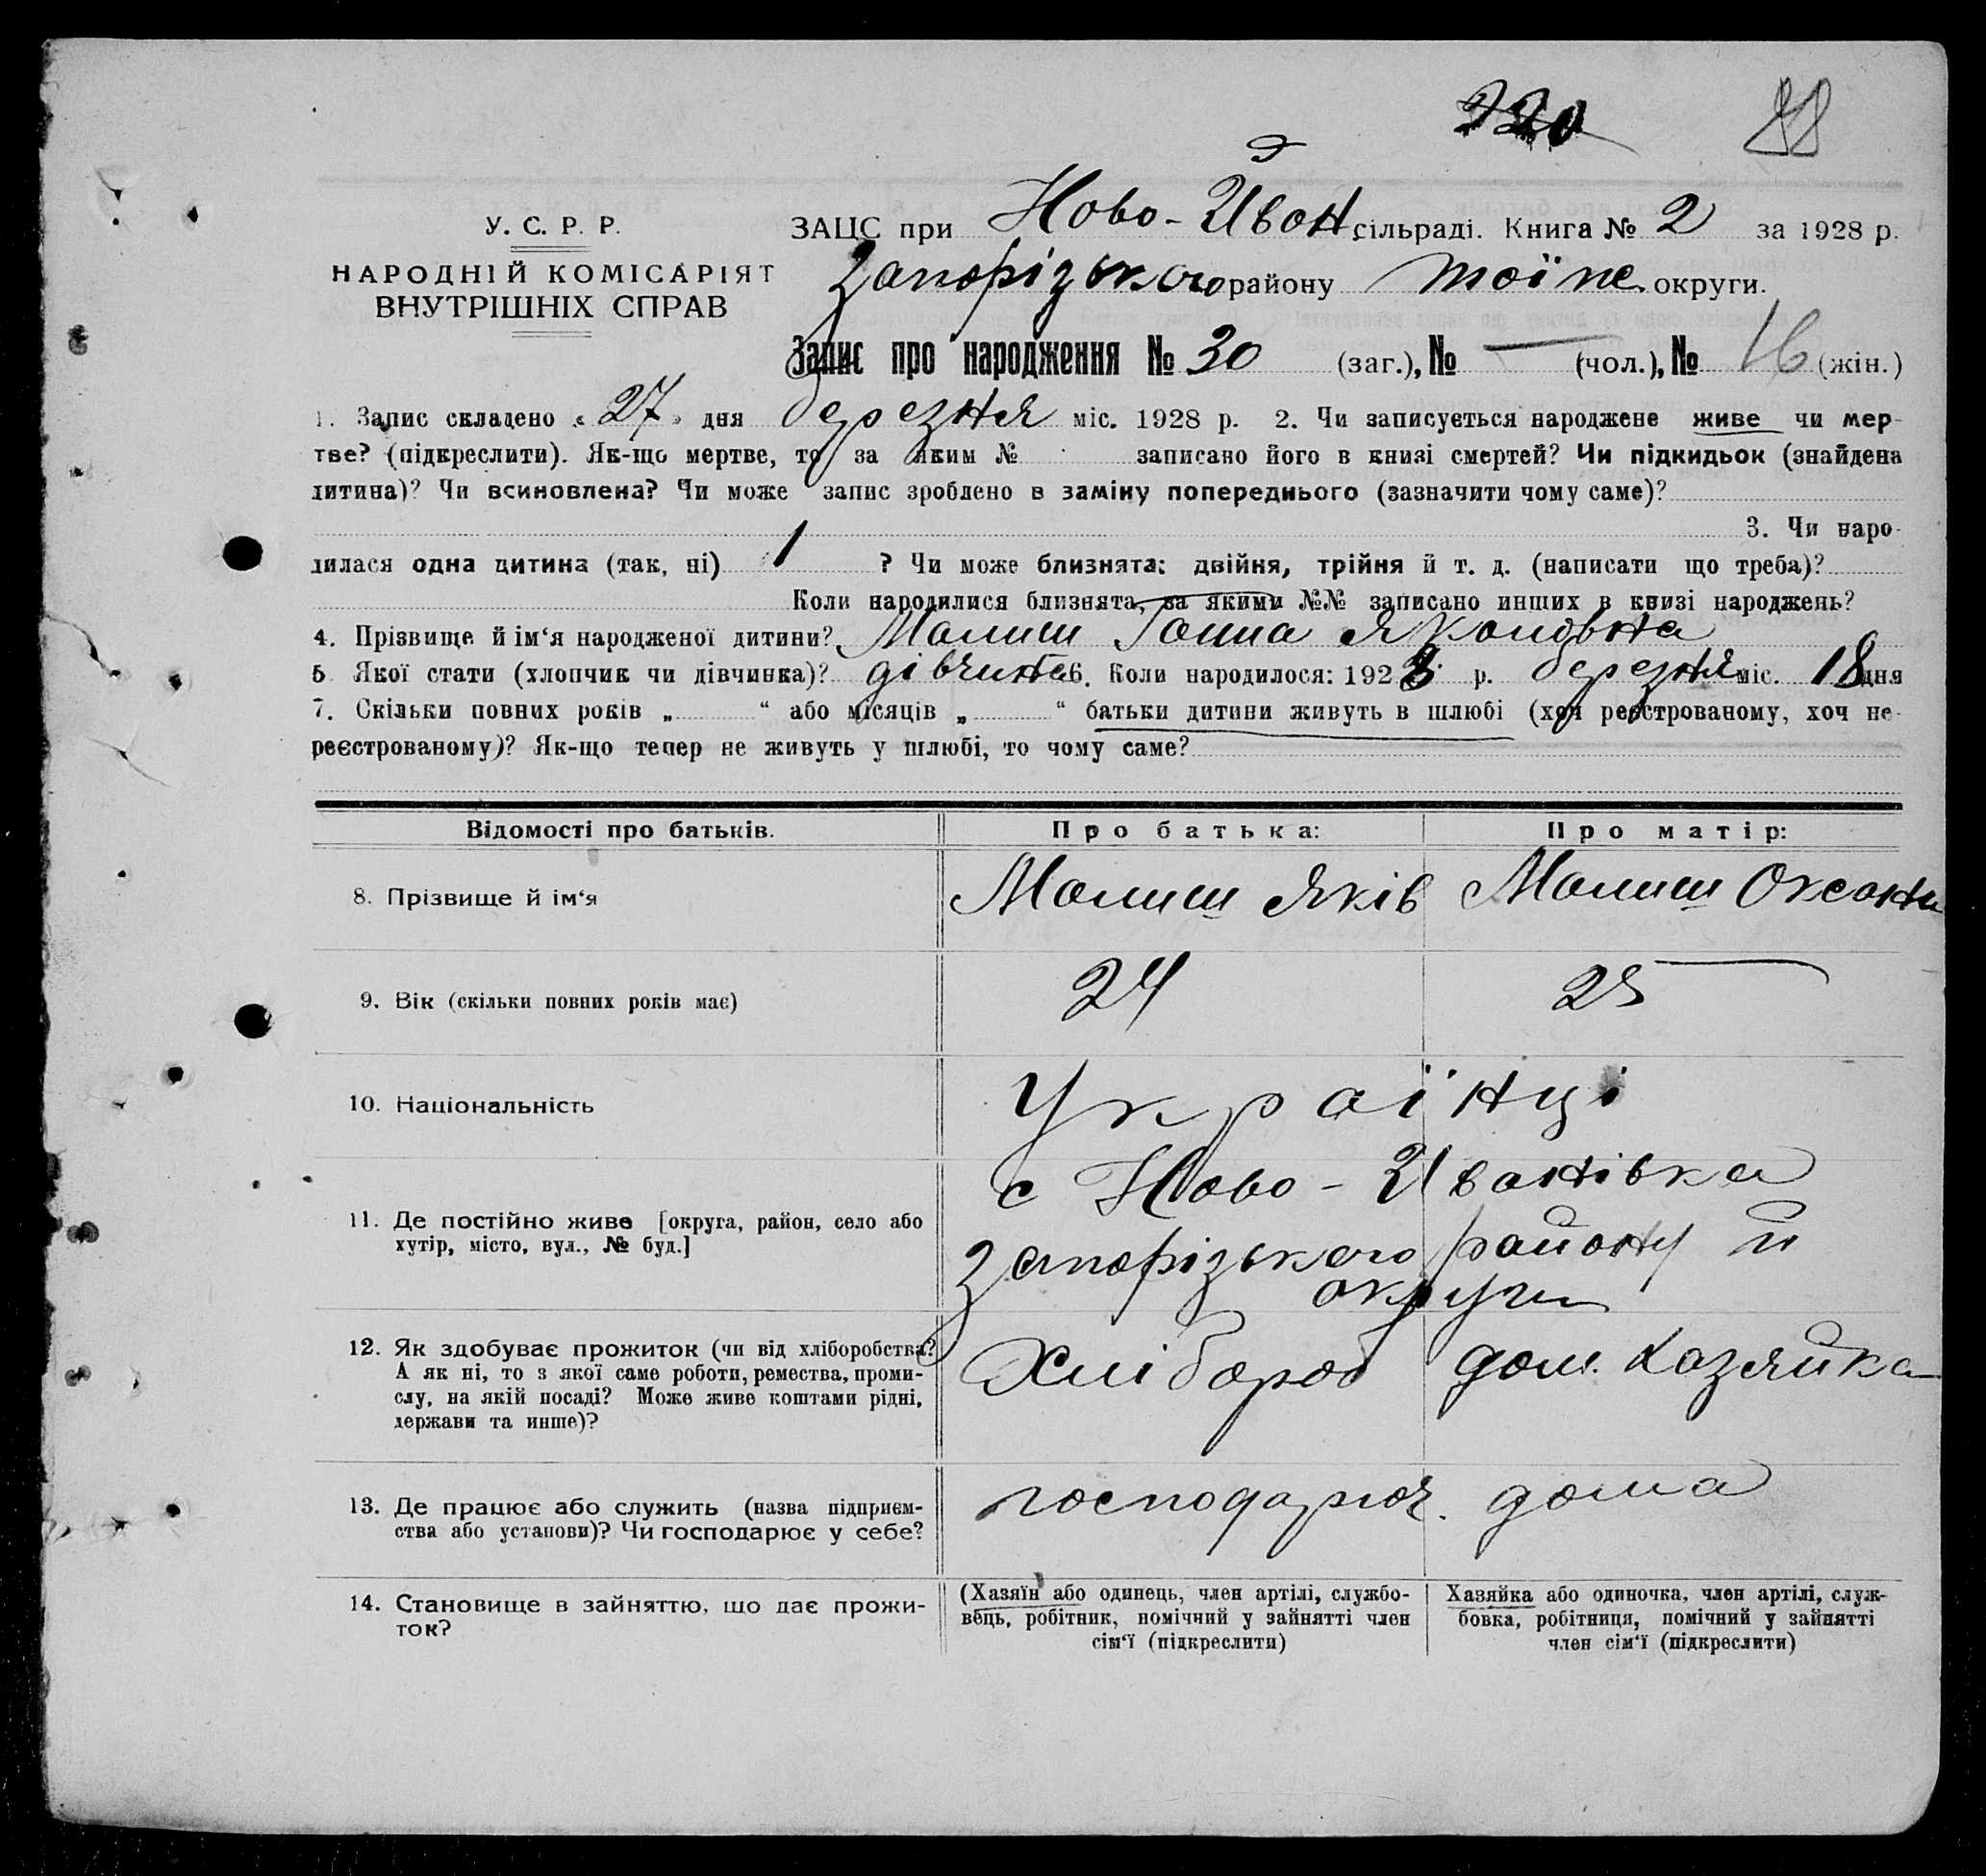 220 88
У. С. Р. Р.
НАРОДНІЙ КОМІСАРІЯТ
ВНУТРІШНІХ СПРАВ
ЗАЦС при Ново-Іван. сільраді. Книга № 2 за 1928 р.
Запорізького району тої же округи.
Запис про народження № 30 (заг.), № — (чол.), № 16 (жін.)
1. Запис складено „27" дня березня міс. 1928 р. 2. Чи записується народжене живе чи мер-
тве? (підкреслити). Як-що мертве, то за яким № записано його в книзі смертей? Чи підкидьок (знайдена
дитина)? Чи всиновлена? Чи може запис зроблено в заміну попереднього (зазначити чому саме)?
3. Чи наро-
дилася одна дитина (так, ні) 1 ? Чи може близнята: двійня, трійня й т. д. (написати що треба)?
Коли народилися близнята, за якими №№ записано инших в книзі народжень?
4. Прізвище й ім‘я народженої дитини? Малиш Ганна Яковівна
5 Якої стати (хлопчик чи дівчинка)? дівчинка 6. Коли народилося: 1928 р. березня міс. 18 дня
7. Скільки повних років „ “ або місяців „ “ батьки дитини живуть в шлюбі (хоч реєстрованому, хоч не
реєстрованому)? Як-що тепер не живуть у шлюбі, то чому саме?
Відомості про батьків. Про батька: Про матір:
8. Прізвище й ім‘я Малиш Яків Малиш Оксана
9. Вік (скільки повних років має) 24 25
10. Національність Українці
11. Де постійно живе [округа, район, село або
хутір, місто, вул., № буд.]
с Ново-Иванівка
Запорізького району й
округи
12. Як здобуває прожиток (чи від хліборобства?
А як ні, то з якої саме роботи, ремества, проми-
слу, на якій посаді? Може живе коштами рідні,
держави та инше)?
Хлібороб дом. хазяйка
13. Де працює або служить (назва підприєм-
ства або установи)? Чи господарює у себе?
господарює. дома
14. Становище в зайняттю, що дає прожи-
ток?
(Хазяїн або одинець, член артілі, службо-
вець, робітник, помічний у зайнятті член
сім‘ї (підкреслити)
Хазяйка або одиночка, член артілі, служ-
бовка, робітниця, помічний у зайнятті
член сім‘ї (підкреслити)